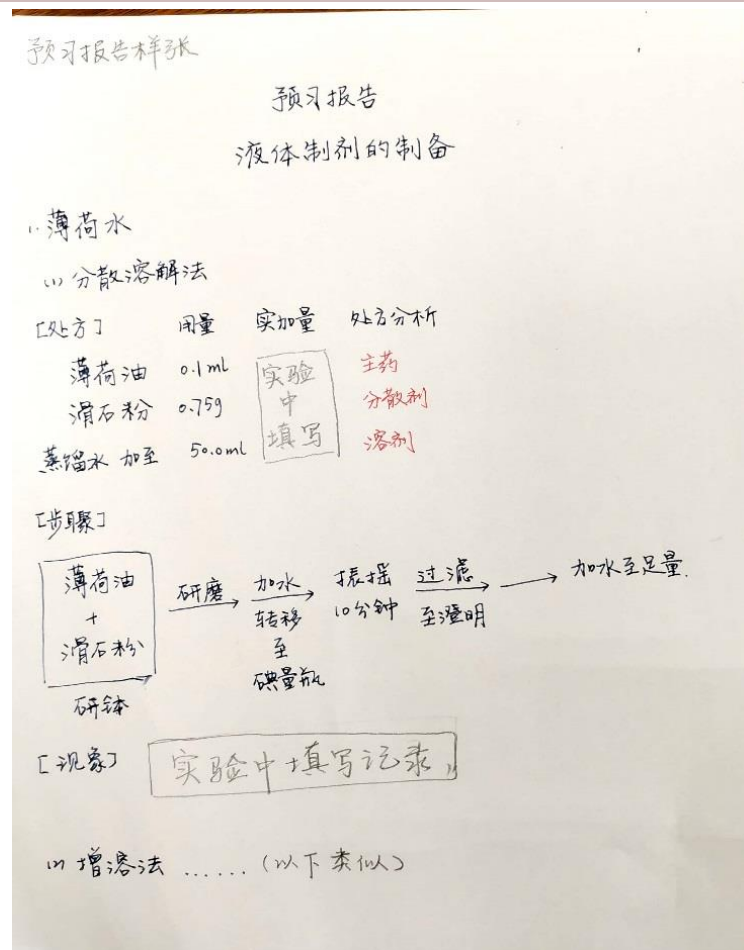 预习报告样张
预习报告
液体制剂的制备
1. 薄荷水
(1) 分散溶解法
[处方] 用量 实加量 处方分析
薄荷油 0.1ml 实验 主药
滑石粉 0.75g 中 分散剂
蒸馏水 加至 50.0ml 填写 溶剂
[步骤]
薄荷油 + 滑石粉
研钵
研磨
加水
转移
至
碘量瓶
振摇
10分钟
过滤
至澄明
加水至足量.
[现象] 实验中填写记录
(2) 增溶法 ...... (以下类似)